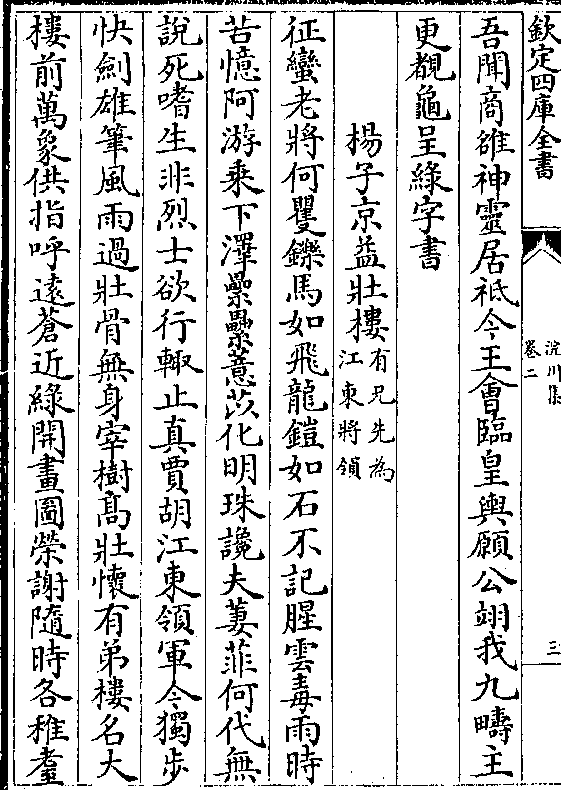 欽定四庫全書
浣川集
卷二
三
吾聞商雒神靈居祗今王會臨皇輿願公翊我九疇主
更覩龜呈綠字書
楊子京益壯樓有兄先為江東將領
征蠻老將何矍鑠馬如飛龍鎧如石不記腥雲毒雨時
苦憶阿游乗下澤纍纍薏苡化明珠讒夫萋菲何代無
說死嗜生非烈士欲行輙止真賈胡江東領軍今獨步
快劍雄筆風雨過壯骨無身宰樹髙壯懷有弟樓名大
樓前萬象供指呼逺蒼近綠開畫圖榮謝隨時各稚耋